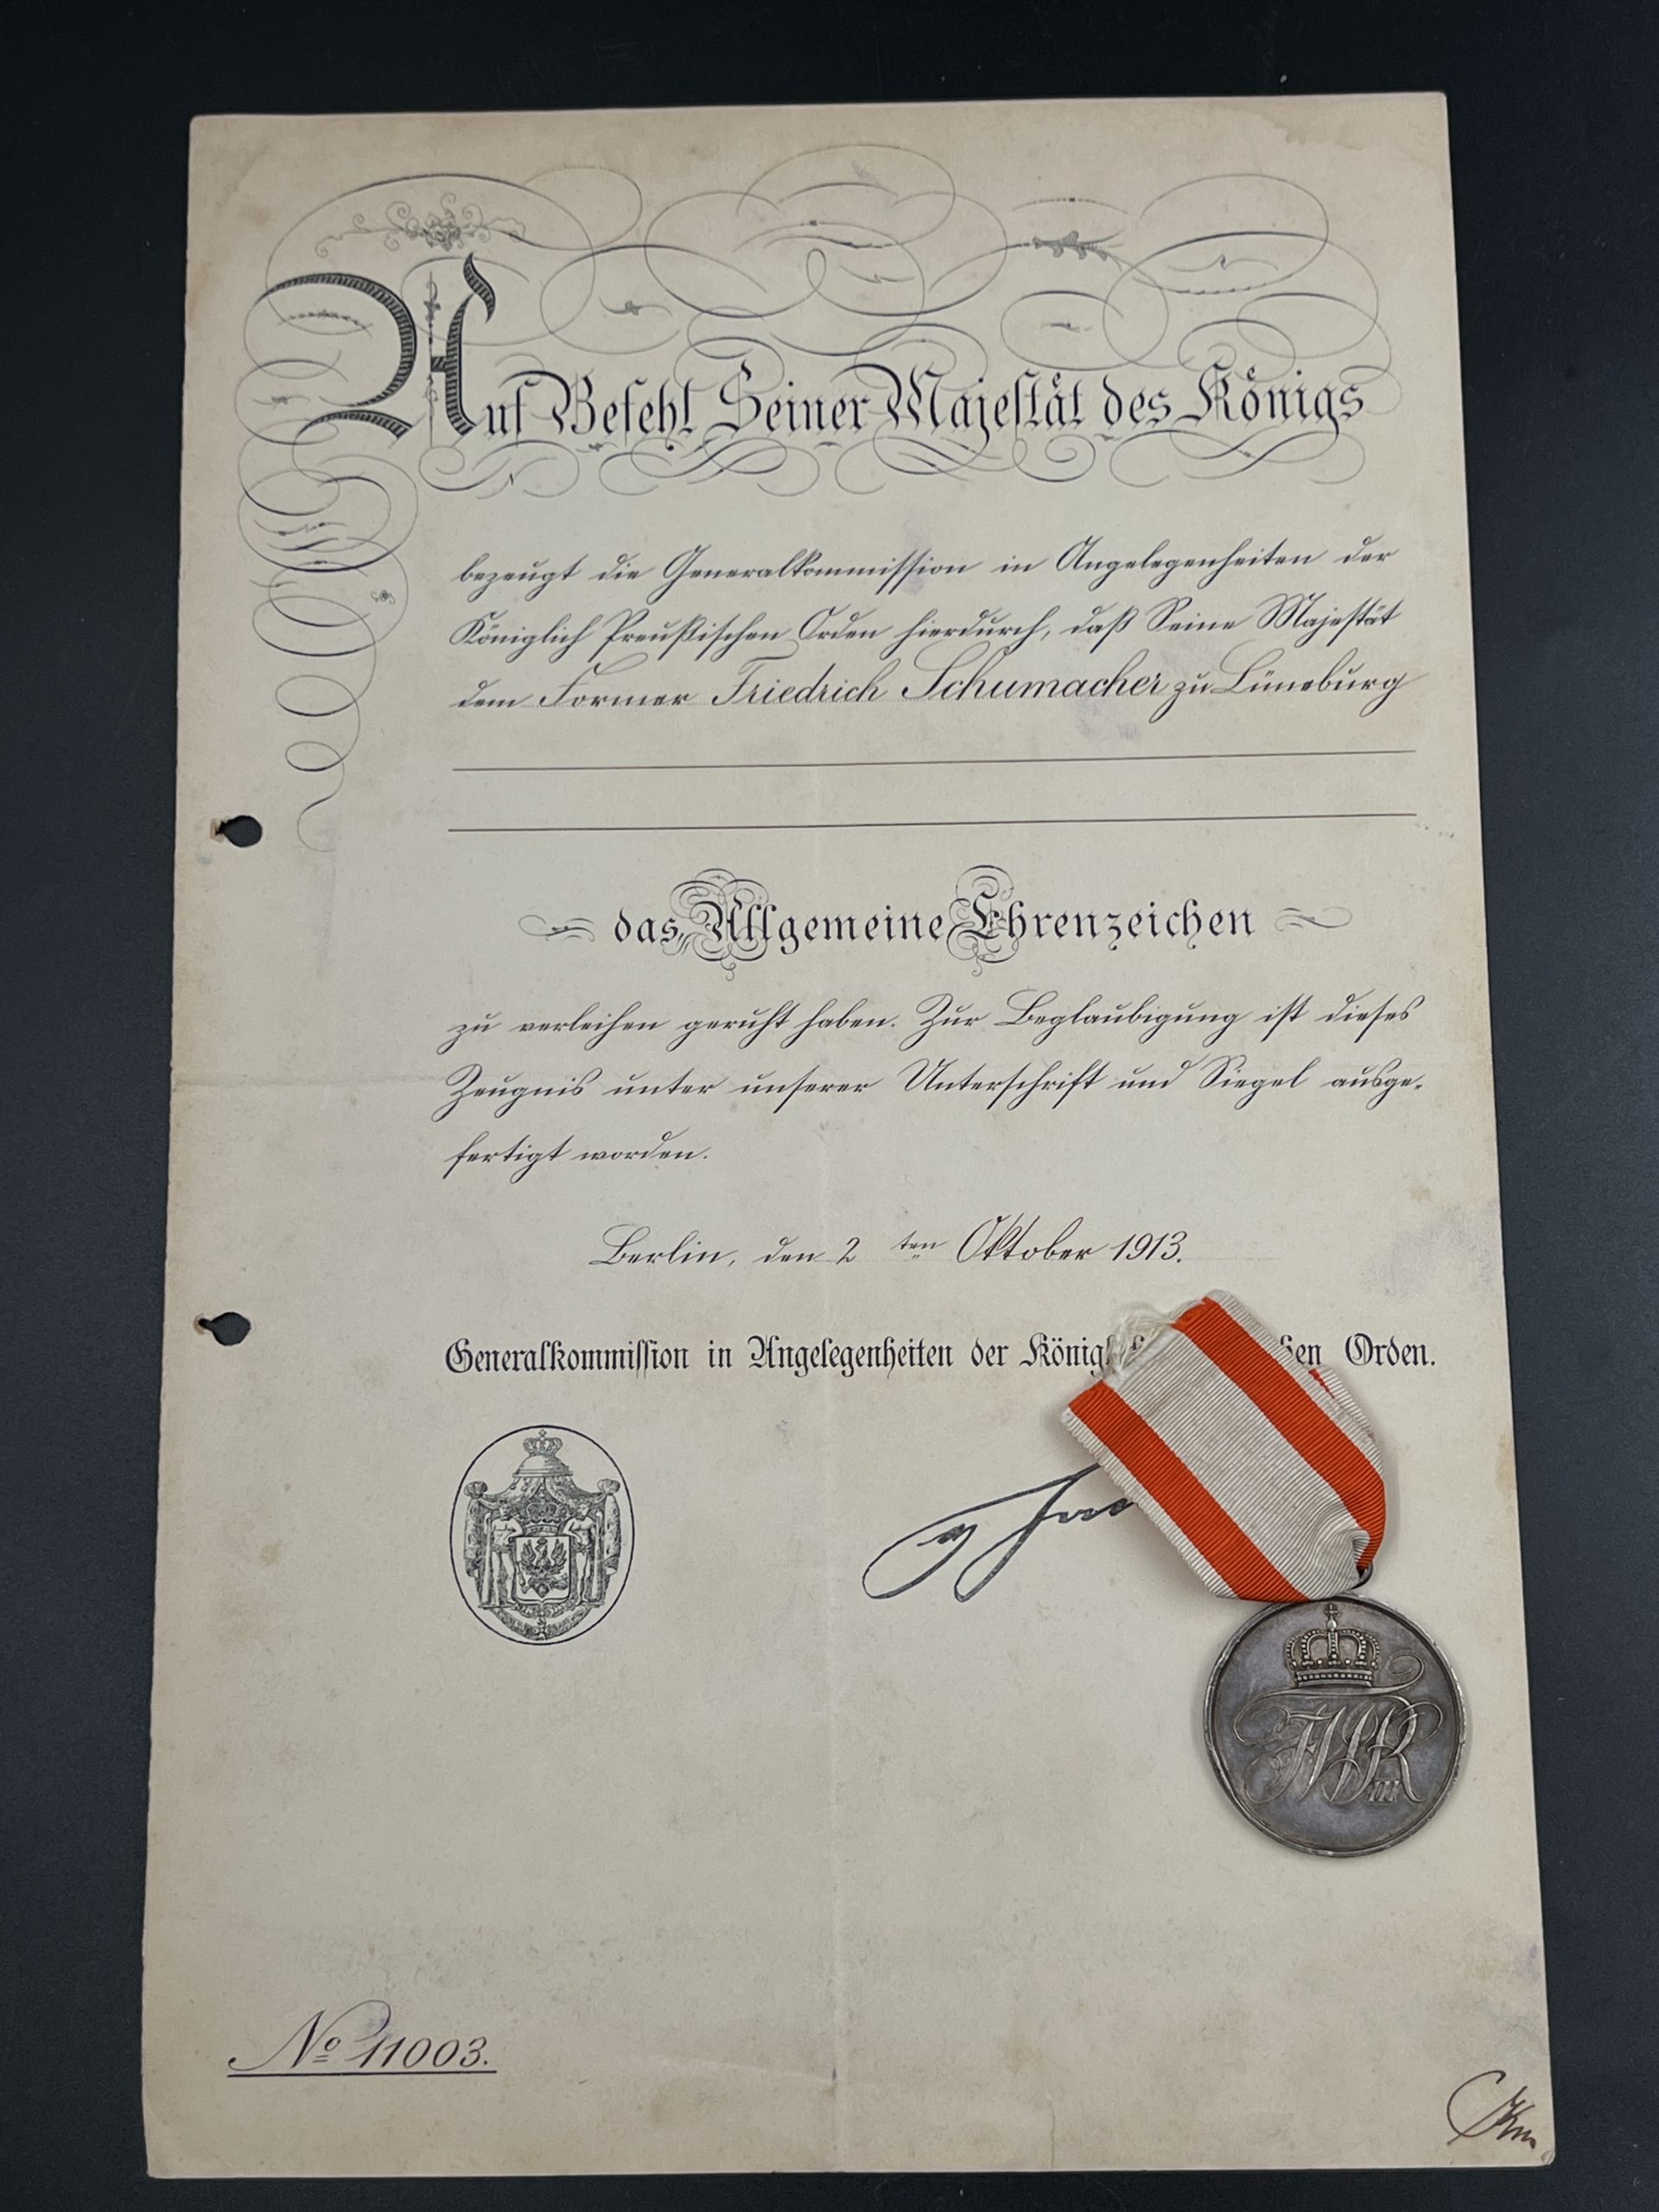 Auf Befehl Seiner Majestät des Königs
bezeugt die Generalkommission in Angelegenheiten der
Königlich Preußischen Orden hierdurch, daß Seine Majestät
dem Former Friedrich Schumacher zu Lüneburg
das Allgemeine Ehrenzeichen
zu verleihen geruht haben. Zur Beglaubigung ist dieses
Zeugnis unter unserer Unterschrift und Siegel ausge-
fertigt worden.
Berlin, den 2 ten Oktober 1913.
Generalkommission in Angelegenheiten der König Orden.
FWR III
No 11003.